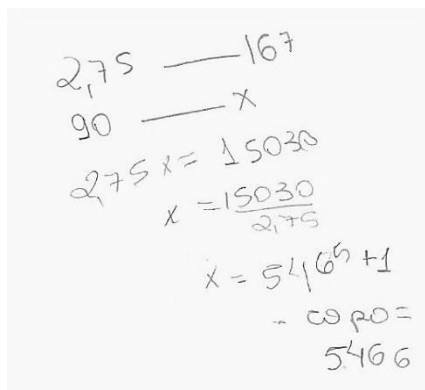 2,75 — 167
90 — x
2,75 x = 15030
x = 15030
2,75
x = 5465 + 1
- copo =
5466